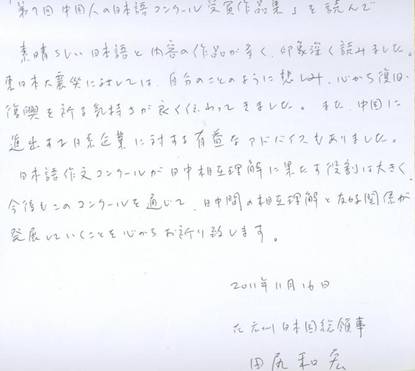 「第7回 中国人の日本語コンクール受賞作品集」を読んで
素晴らしい日本語と内容の作品が多く、印象深く読みました。
東日本大震災に対しては、自分のことのように悲しみ、心から復旧・
復興を祈る気持ちが良く伝わってきました。また、中国に
進出する日系企業に対する有益なアドバイスもありました。
日本語作文コンクールが日中相互理解に果たす役割は大きく、
今後もこのコンクールを通じて、日中間の相互理解と友好関係が
発展していくことを心からお祈り致します。
2011年11月16日
在広州日本国総領事
田尻和宏